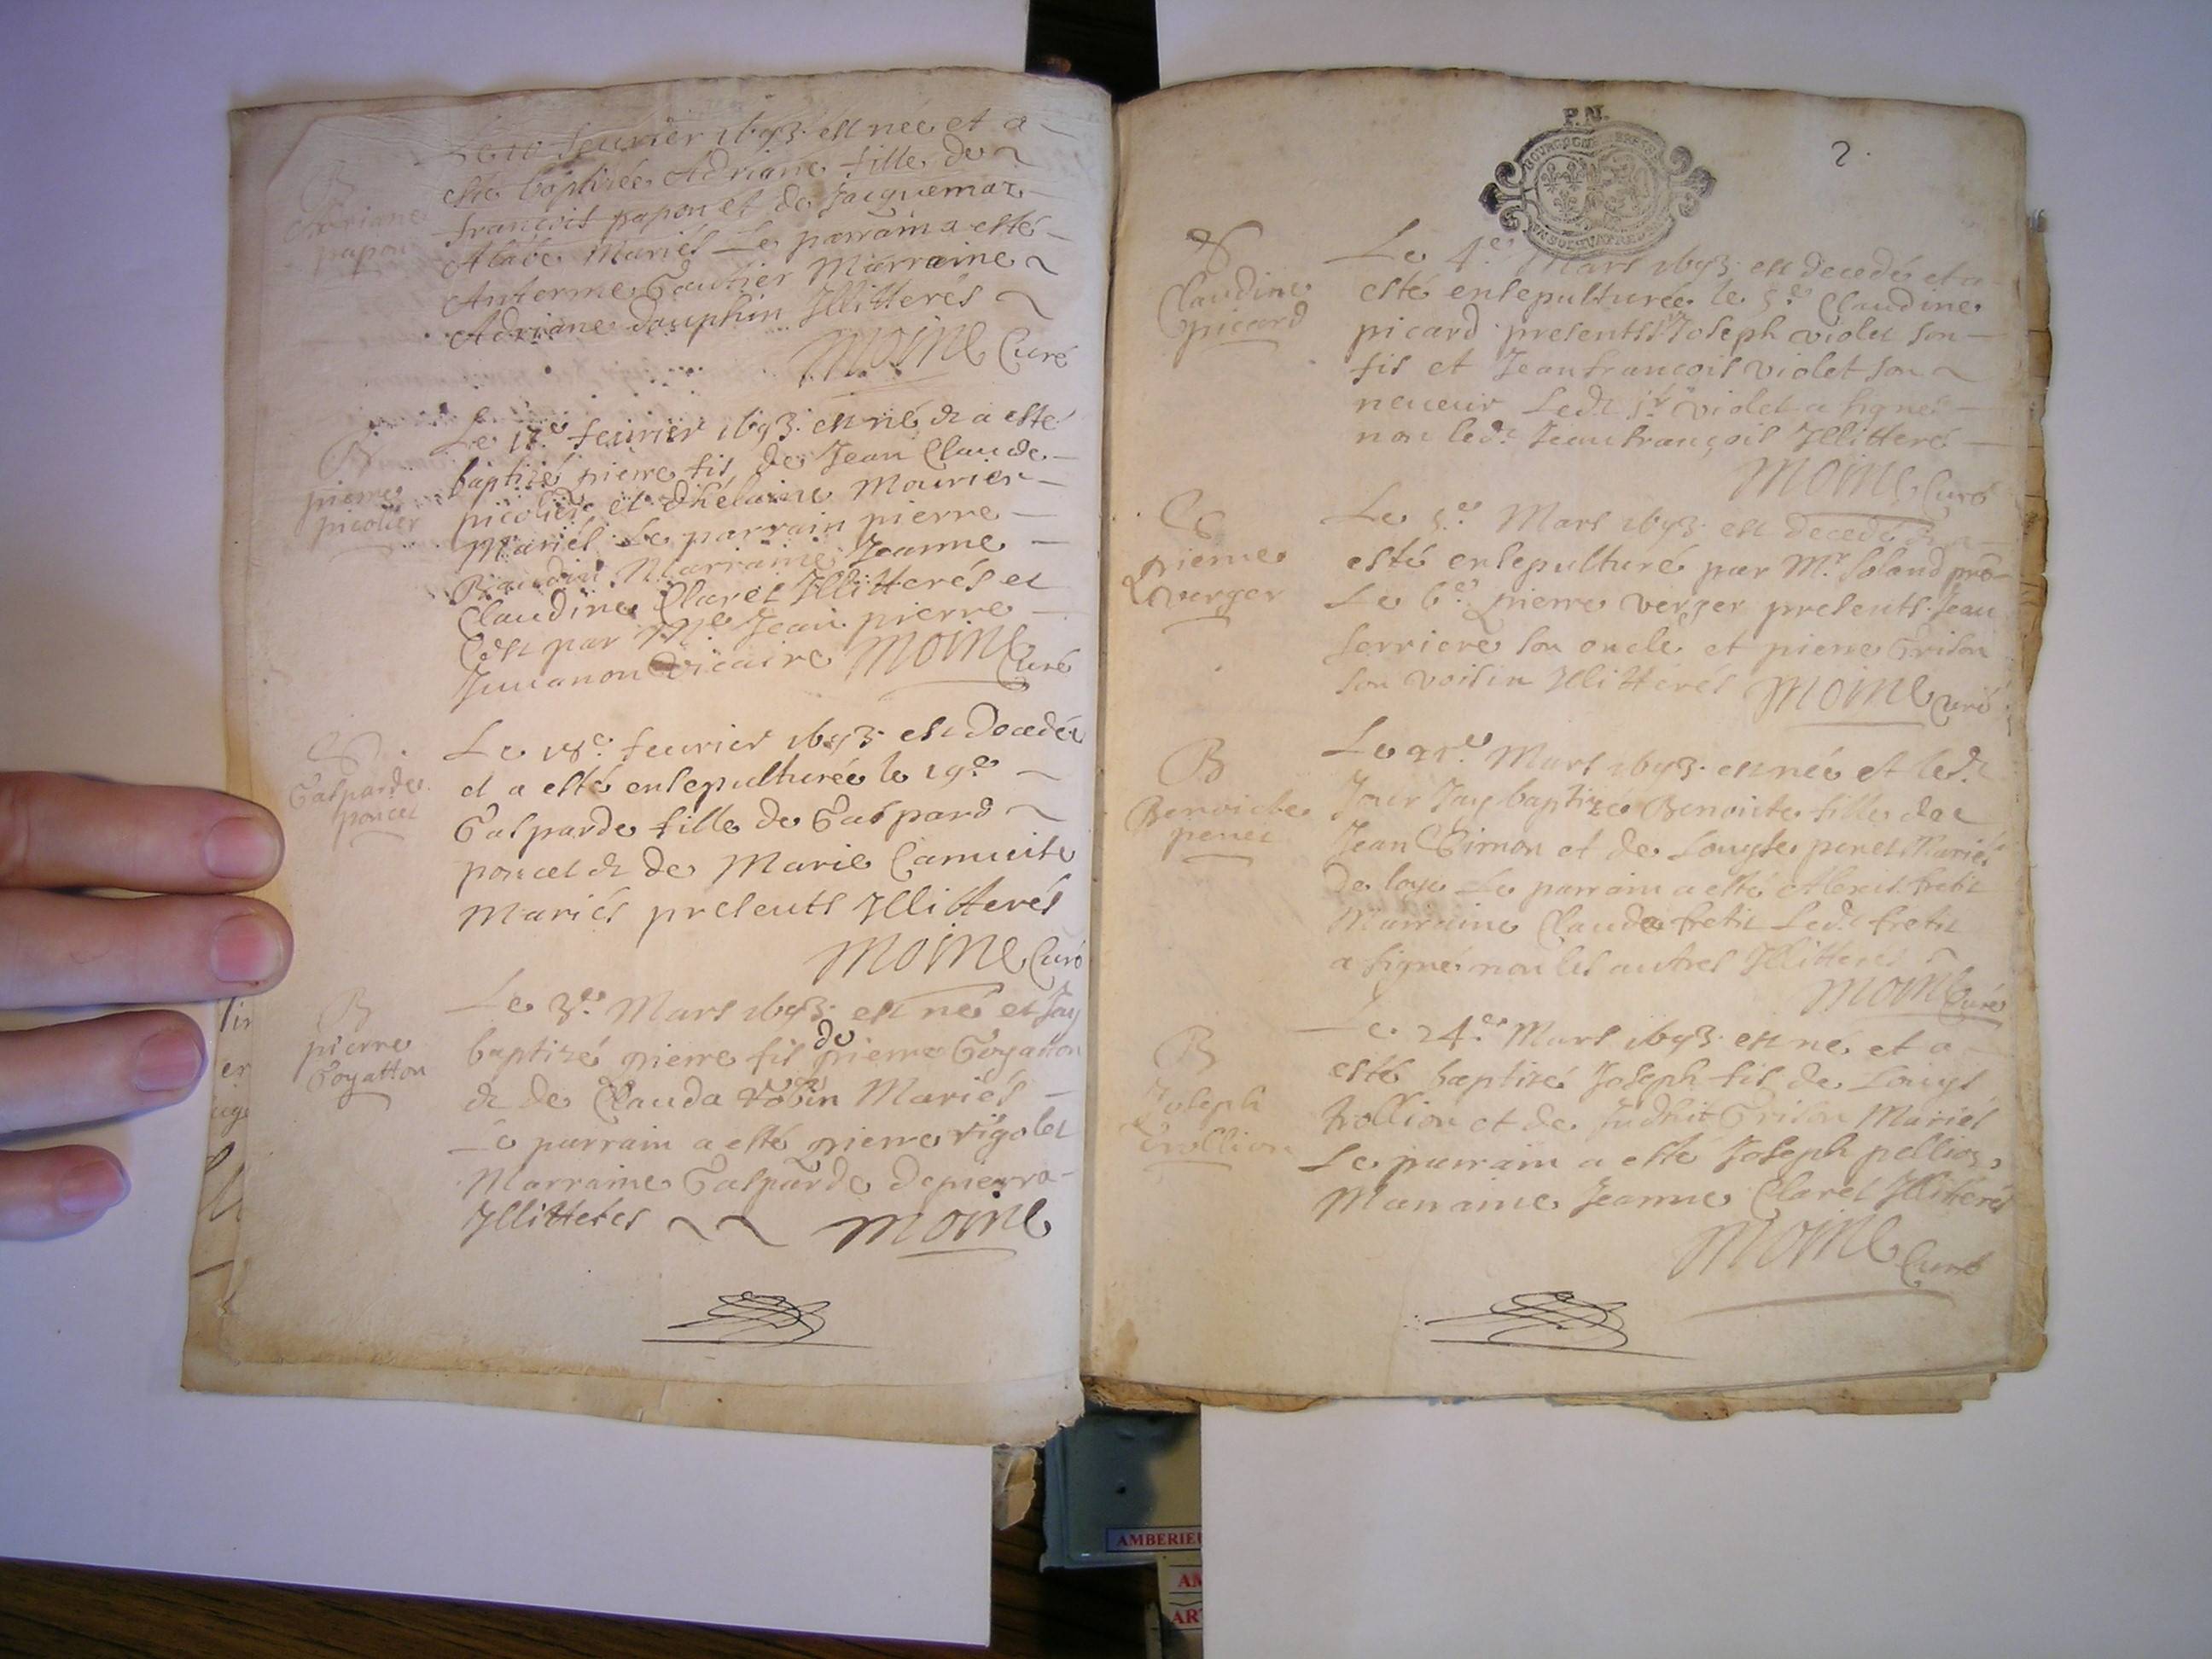 B
Adriane
papon
Le 10 feurier 1693. est neé et a
esté baptizeé Adriane fille de
françois papon et de Jacquemaz
Mariés Le parrain a esté
Antermé Gautier Marraine
Adriane dauphin Illitterés
MOINE Curé
B
pierre
picolier
Le 17.e feurier 1693. est né & a esté
baptizé pierre fils de Jean Claude
picolier et d'hélaine Mourier
Mariés Le parrain pierre
Baudin Marraine Jeanne
Claudine Claret Illitterés et
par M.e Jean pierre
Juuanon vicaire MOINE Curé
Gasparde
poncet
Le 18.e feurier 1693. est Decedeé
et a esté ensepultureé le 19.e
Gasparde fille de Gaspard
poncet & de Marie
Mariés presents Illitterés
MOINE Curé
B
pierre
Goyatton
Le 3.e Mars 1693. est né et Jay
baptizé pierre fils de pierre Goyatton
& de Clauda robin Mariés
Le parrain a esté pierre rigolet
Marraine Gasparde depierra
Illitterés MOINE
P.N.
2.
Claudine
picard
Le 4.e Mars 1693. est decedé et a
esté ensepultureé le 5.e Claudine
picard presents Sr Joseph violet son
fils et Jean francois violet son
neueur Led.t Sr violet a signé
non led.t Jean françois Illitteré
MOINE Curé
pierre
verger
Le 5.e Mars 1693. est decedé & a
esté ensepulturé par M.r Soland
Le 6.e pierre verger presents Jean
ferriere son oncle et pierre Grison
son voisin Illitterés MOINE Curé
B
Benoicte
penet
Le 21.e Mars 1693. est neé et led.t
Jour Jay baptizeé Benoite fille de
Jean Simon et de Louyse penet Mariés
De loye Le parrain a esté Alexis fretit
Marraine Clauda fretit Led.t fretit
a signé non les autres Illitterés
MOINE Curé
B
Joseph
trollion
Le 24.e Mars 1693. est né et a
esté baptizé Joseph fils de Louys
trollion et de Judhit Grison Mariés
Le parrain a esté Joseph pellion
Marraine Jeanne Claret Illitterés
MOINE Curé
AMBERIEU